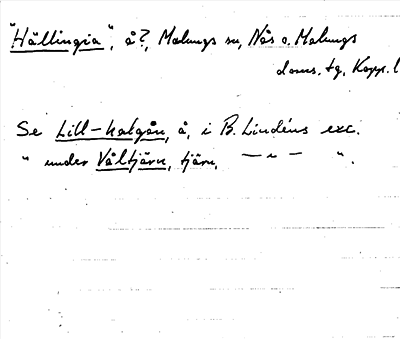 "Hällingia", å?, Malungs sn, Nås o. Malungs
doms. tg, Kopp. l
Se Lill-halgån, å, i B. Lindéns exc.
" under Våltjärn, tjärn, — " — ".